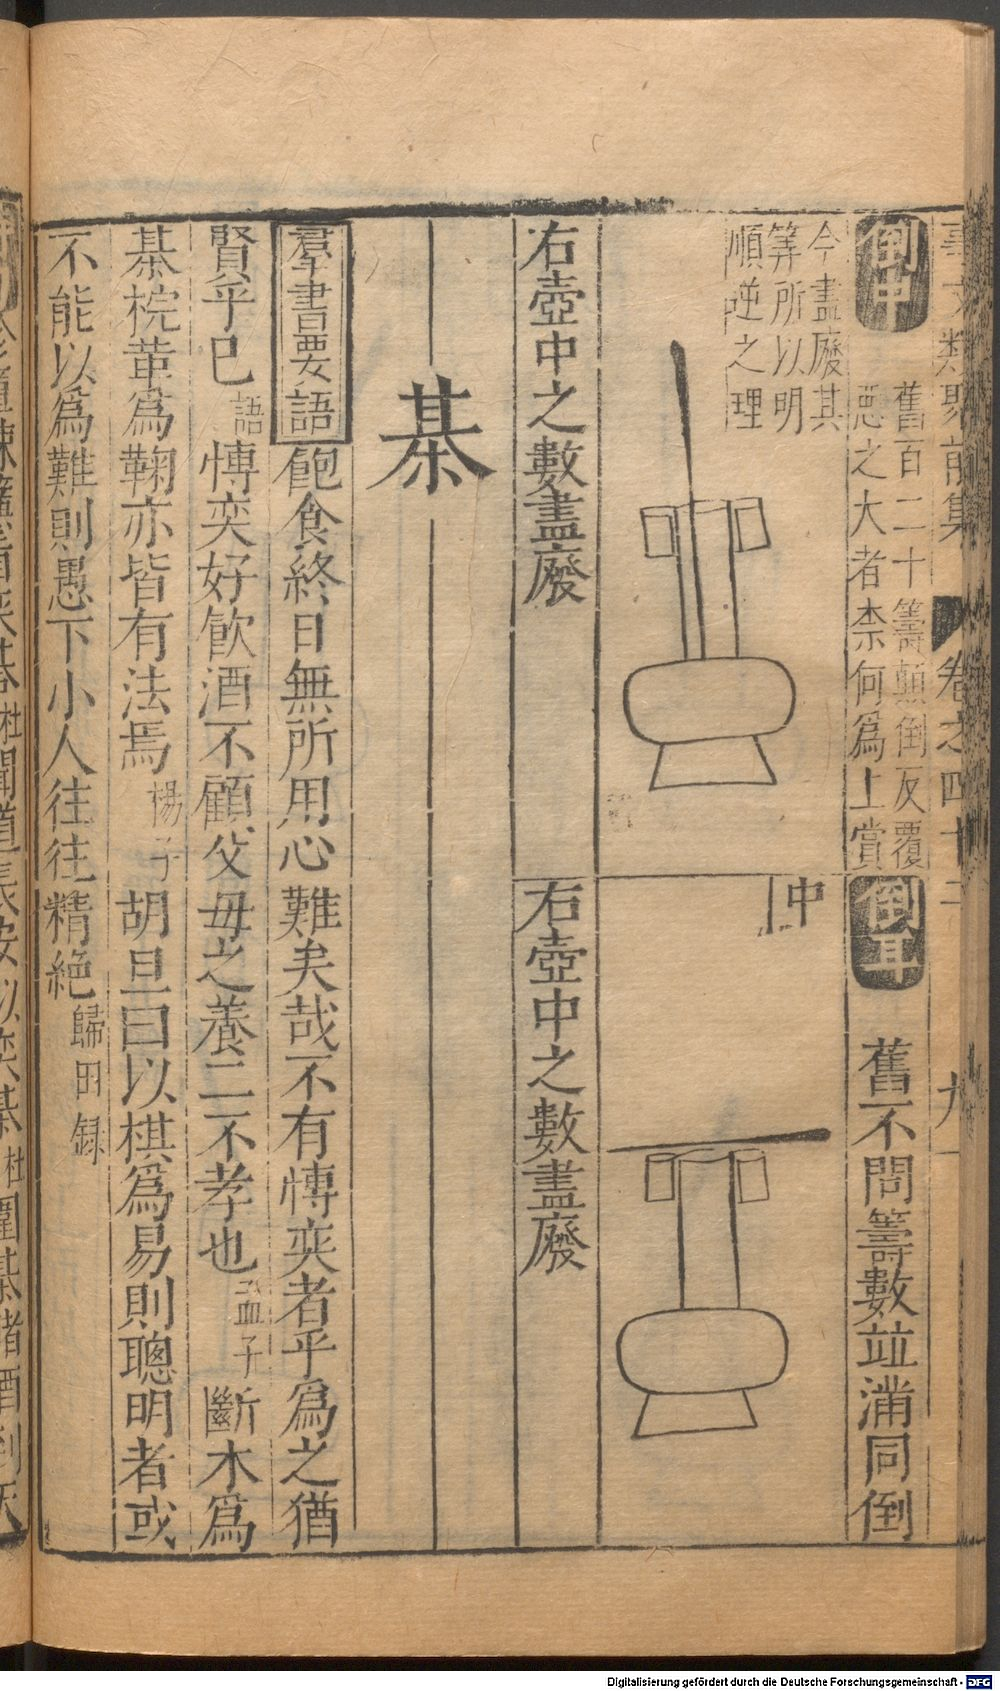 事文類聚前集 卷之四十二 九
倒中
舊百二十籌顛倒反覆
惡之大者柰何爲上賞
今盡廢其
筭所以明
順逆之理
右壺中之數盡廢
倒耳
舊不問籌數竝滿同倒
中
右壺中之數盡廢
棊
羣書要語 飽食終日無所用心難矣哉不有愽奕者乎爲之猶
賢乎已語 愽奕好飮酒不顧父毋之養二不孝也孟子 斷木爲
棊梡革爲鞠亦皆有法焉楊子 胡旦曰以棋爲易則聰明者或
不能以爲難則愚下小人往往精絶歸田録
杜 聞道長安以奕棊杜 圍棊賭酒到天
Digitalisierung gefördert durch die Deutsche Forschungsgemeinschaft - DFG